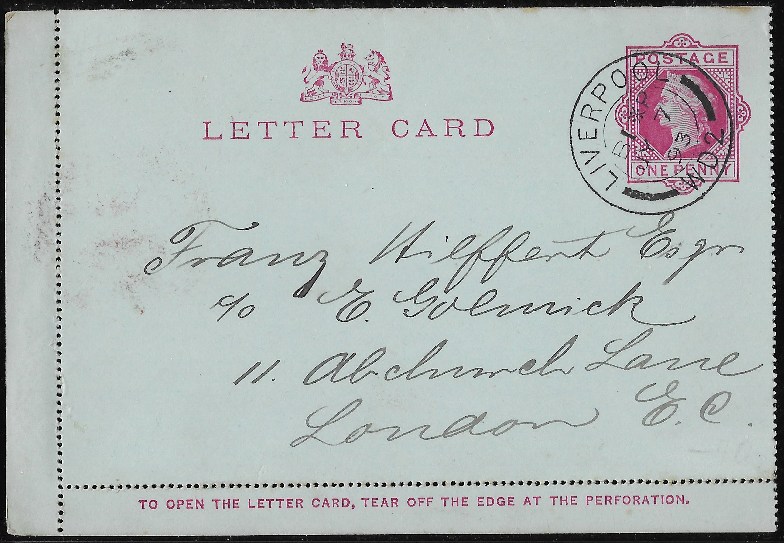 LETTER CARD
POSTAGE
ONE PENNY
LIVERPOOL
AP 7
93
W.D.2
Franz Hilffert Esqr
c/o E. Golmick
11. Abchurch Lane
London E.C.
TO OPEN THE LETTER CARD, TEAR OFF THE EDGE AT THE PERFORATION.